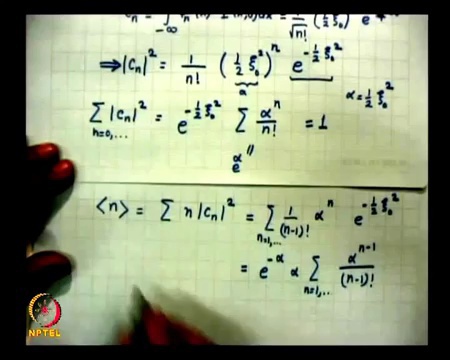 Cₙ = ∫₋∞ ... dx = 1/√n! (½ ξ₀²) e
⟹ |Cₙ|² = 1/n! (½ ξ₀²)ⁿ e^(-½ ξ₀²)
α α = ½ ξ₀²
∑_(n=0,...) |Cₙ|² = e^(-½ ξ₀²) ∑ αⁿ/n! = 1
e^α
⟨n⟩ = ∑ n |Cₙ|² = ∑_(n=1,...) 1/(n-1)! αⁿ e^(-½ ξ₀²)
= e^(-α) α ∑_(n=1,...) α^(n-1)/(n-1)!
NPTEL